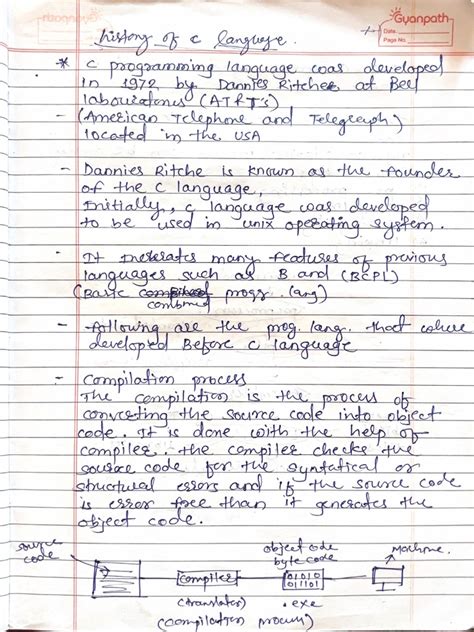 Gyanpath
Date:
Page No.
history of c language.
* C programming language was developed
In 1972 by Dannies Ritchee at Bell
labouratories (AT&T's)
- (American Telephone and Telegraph)
located in the USA
- Dannies Ritche is known as the founder
of the c language,
Initially, c language was developed
to be used in unix operating system.
- It many features of previous
languages such as B and (BCPL)
(Basic progr. lang)
combined
- following are the prog. lang. that where
developed Before c language
- Compilation process
The compilation is the process of
converting the source code into object
code. It is done with the help of
compiler. the compiler checks the
source code for the syntatical or
structural errors and if the source code
is error free than it generates the
object code.
source code
object code
byte code
Machine.
compiler
01010
01101
(translates)
.exe
(compilation process)